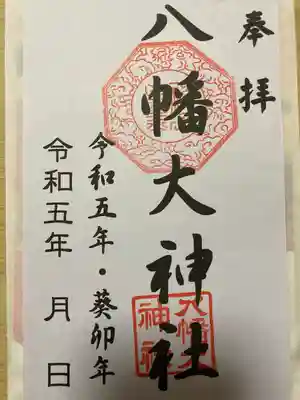 奉拝
八幡大神社
八幡大
神社
令和五年・癸卯年
令和五年 月 日